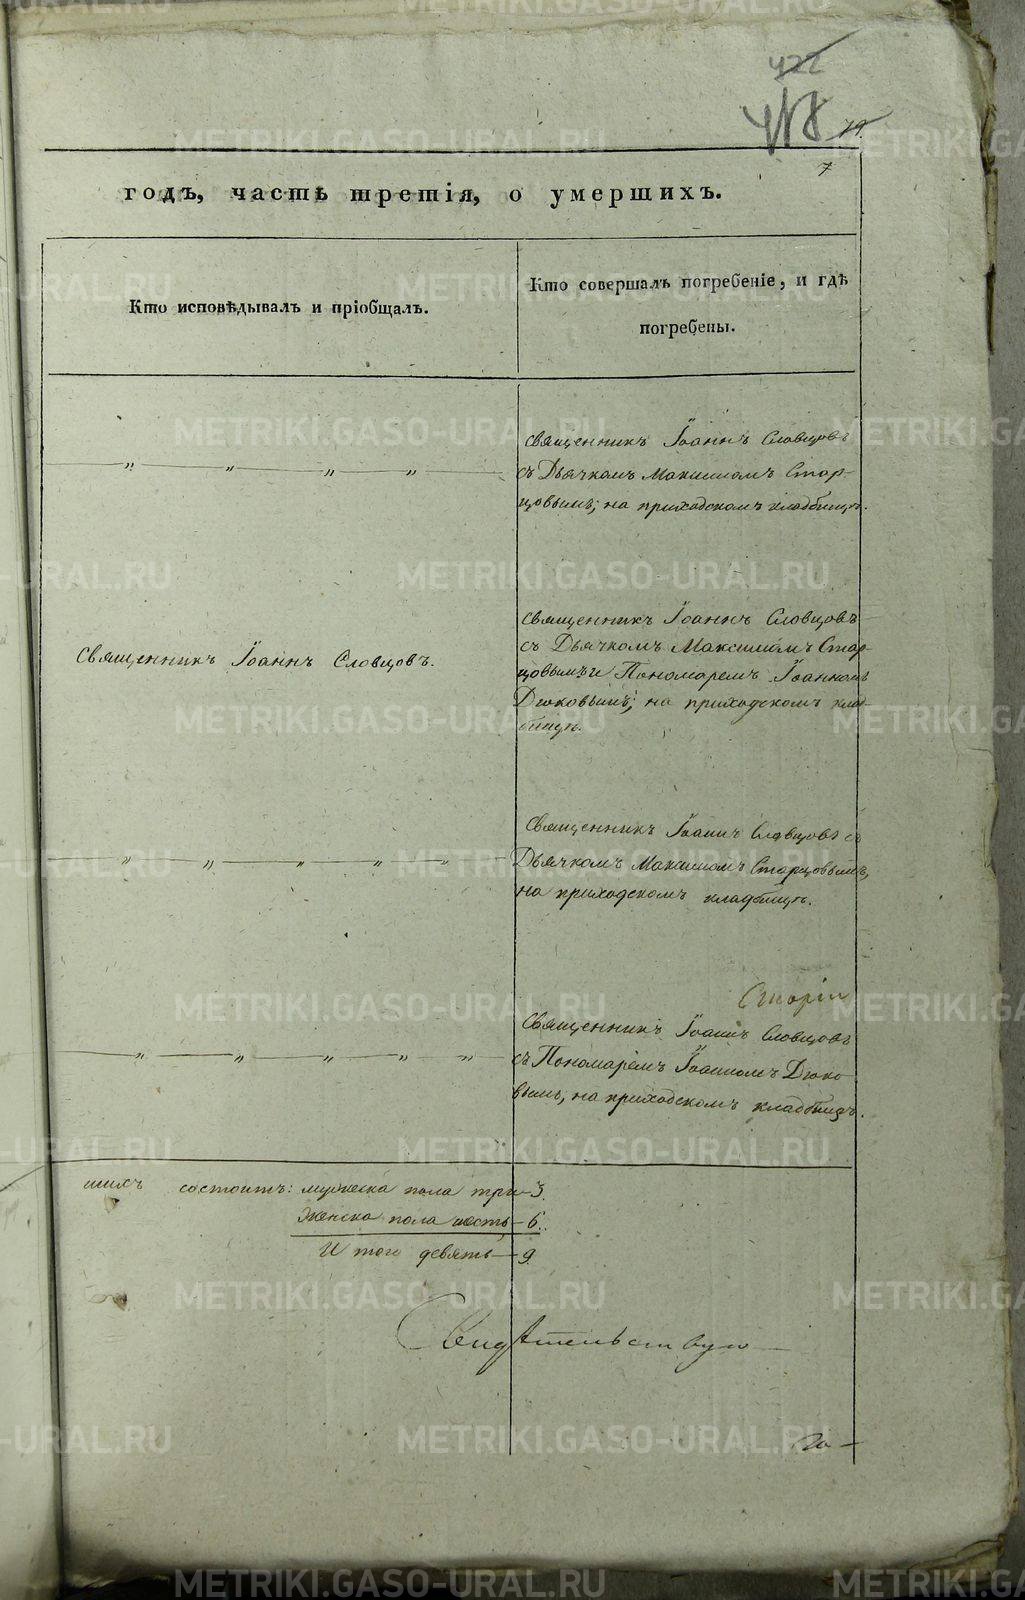 422
418
19.
7
годъ, часть третія, о умершихъ.
Кто исповѣдывалъ и пріобщалъ.
Кто совершалъ погребеніе, и гдѣ
погребены.
Священникъ Іоаннъ Словцовъ
съ Дьячкомъ Максимомъ Стар-
цовымъ; на приходскомъ кладбищѣ.
Священникъ Іоаннъ Словцовъ.
Священникъ Іоаннъ Словцовъ
съ Дьячкомъ Максимомъ Стар-
цовымъ и Пономаремъ Іоанномъ
Дюковымъ; на приходскомъ клад-
бищѣ.
Священникъ Іоаннъ Словцовъ съ
Дьячкомъ Максимомъ Старцовымъ,
на приходскомъ кладбищѣ.
Священникъ Іоаннъ Словцовъ
съ Пономаремъ Іоанномъ Дюко-
вымъ, на приходскомъ кладбищѣ.
шихъ состоитъ: мужеска пола три-3.
Женска пола шесть-6.
И того девять-9.
Свидѣтельствую
METRIKI.GASO-URAL.RU